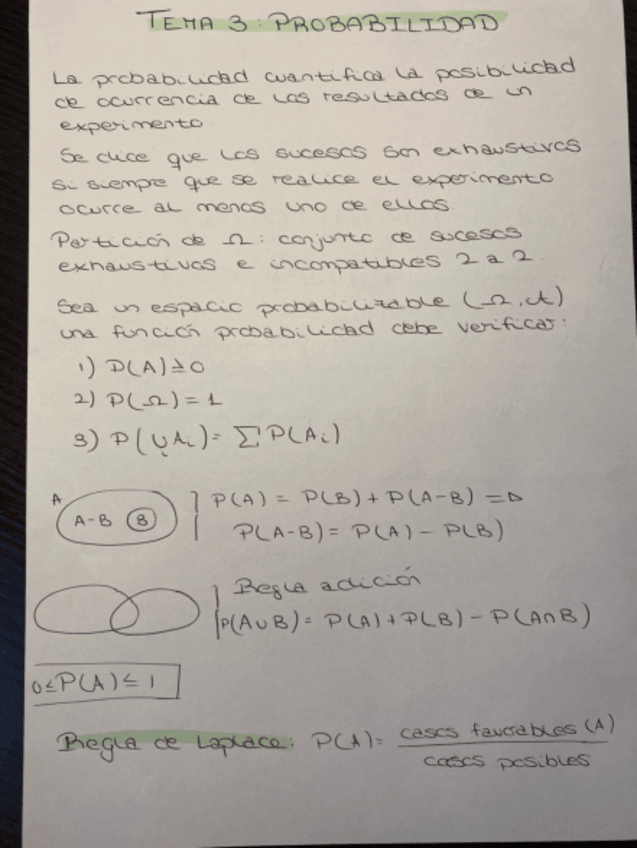 TEMA 3: PROBABILIDAD
La probabilidad cuantifica la posibilidad
de ocurrencia de los resultados de un
experimento.
Se dice que los sucesos son exhaustivos
si siempre que se realice el experimento
ocurre al menos uno de ellos.
Partición de Ω: conjunto de sucesos
exhaustivos e incompatibles 2 a 2.
Sea un espacio probabilizable (Ω, A)
una función probabilidad debe verificar:
1) P(A) ≥ 0
2) P(Ω) = 1
3) P(∪Ai) = Σ P(Ai)
A
A-B B
P(A) = P(B) + P(A-B) ⇒
P(A-B) = P(A) - P(B)
Regla adición
P(A∪B) = P(A) + P(B) - P(A∩B)
0 ≤ P(A) ≤ 1
Regla de Laplace: P(A) = casos favorables (A)
casos posibles